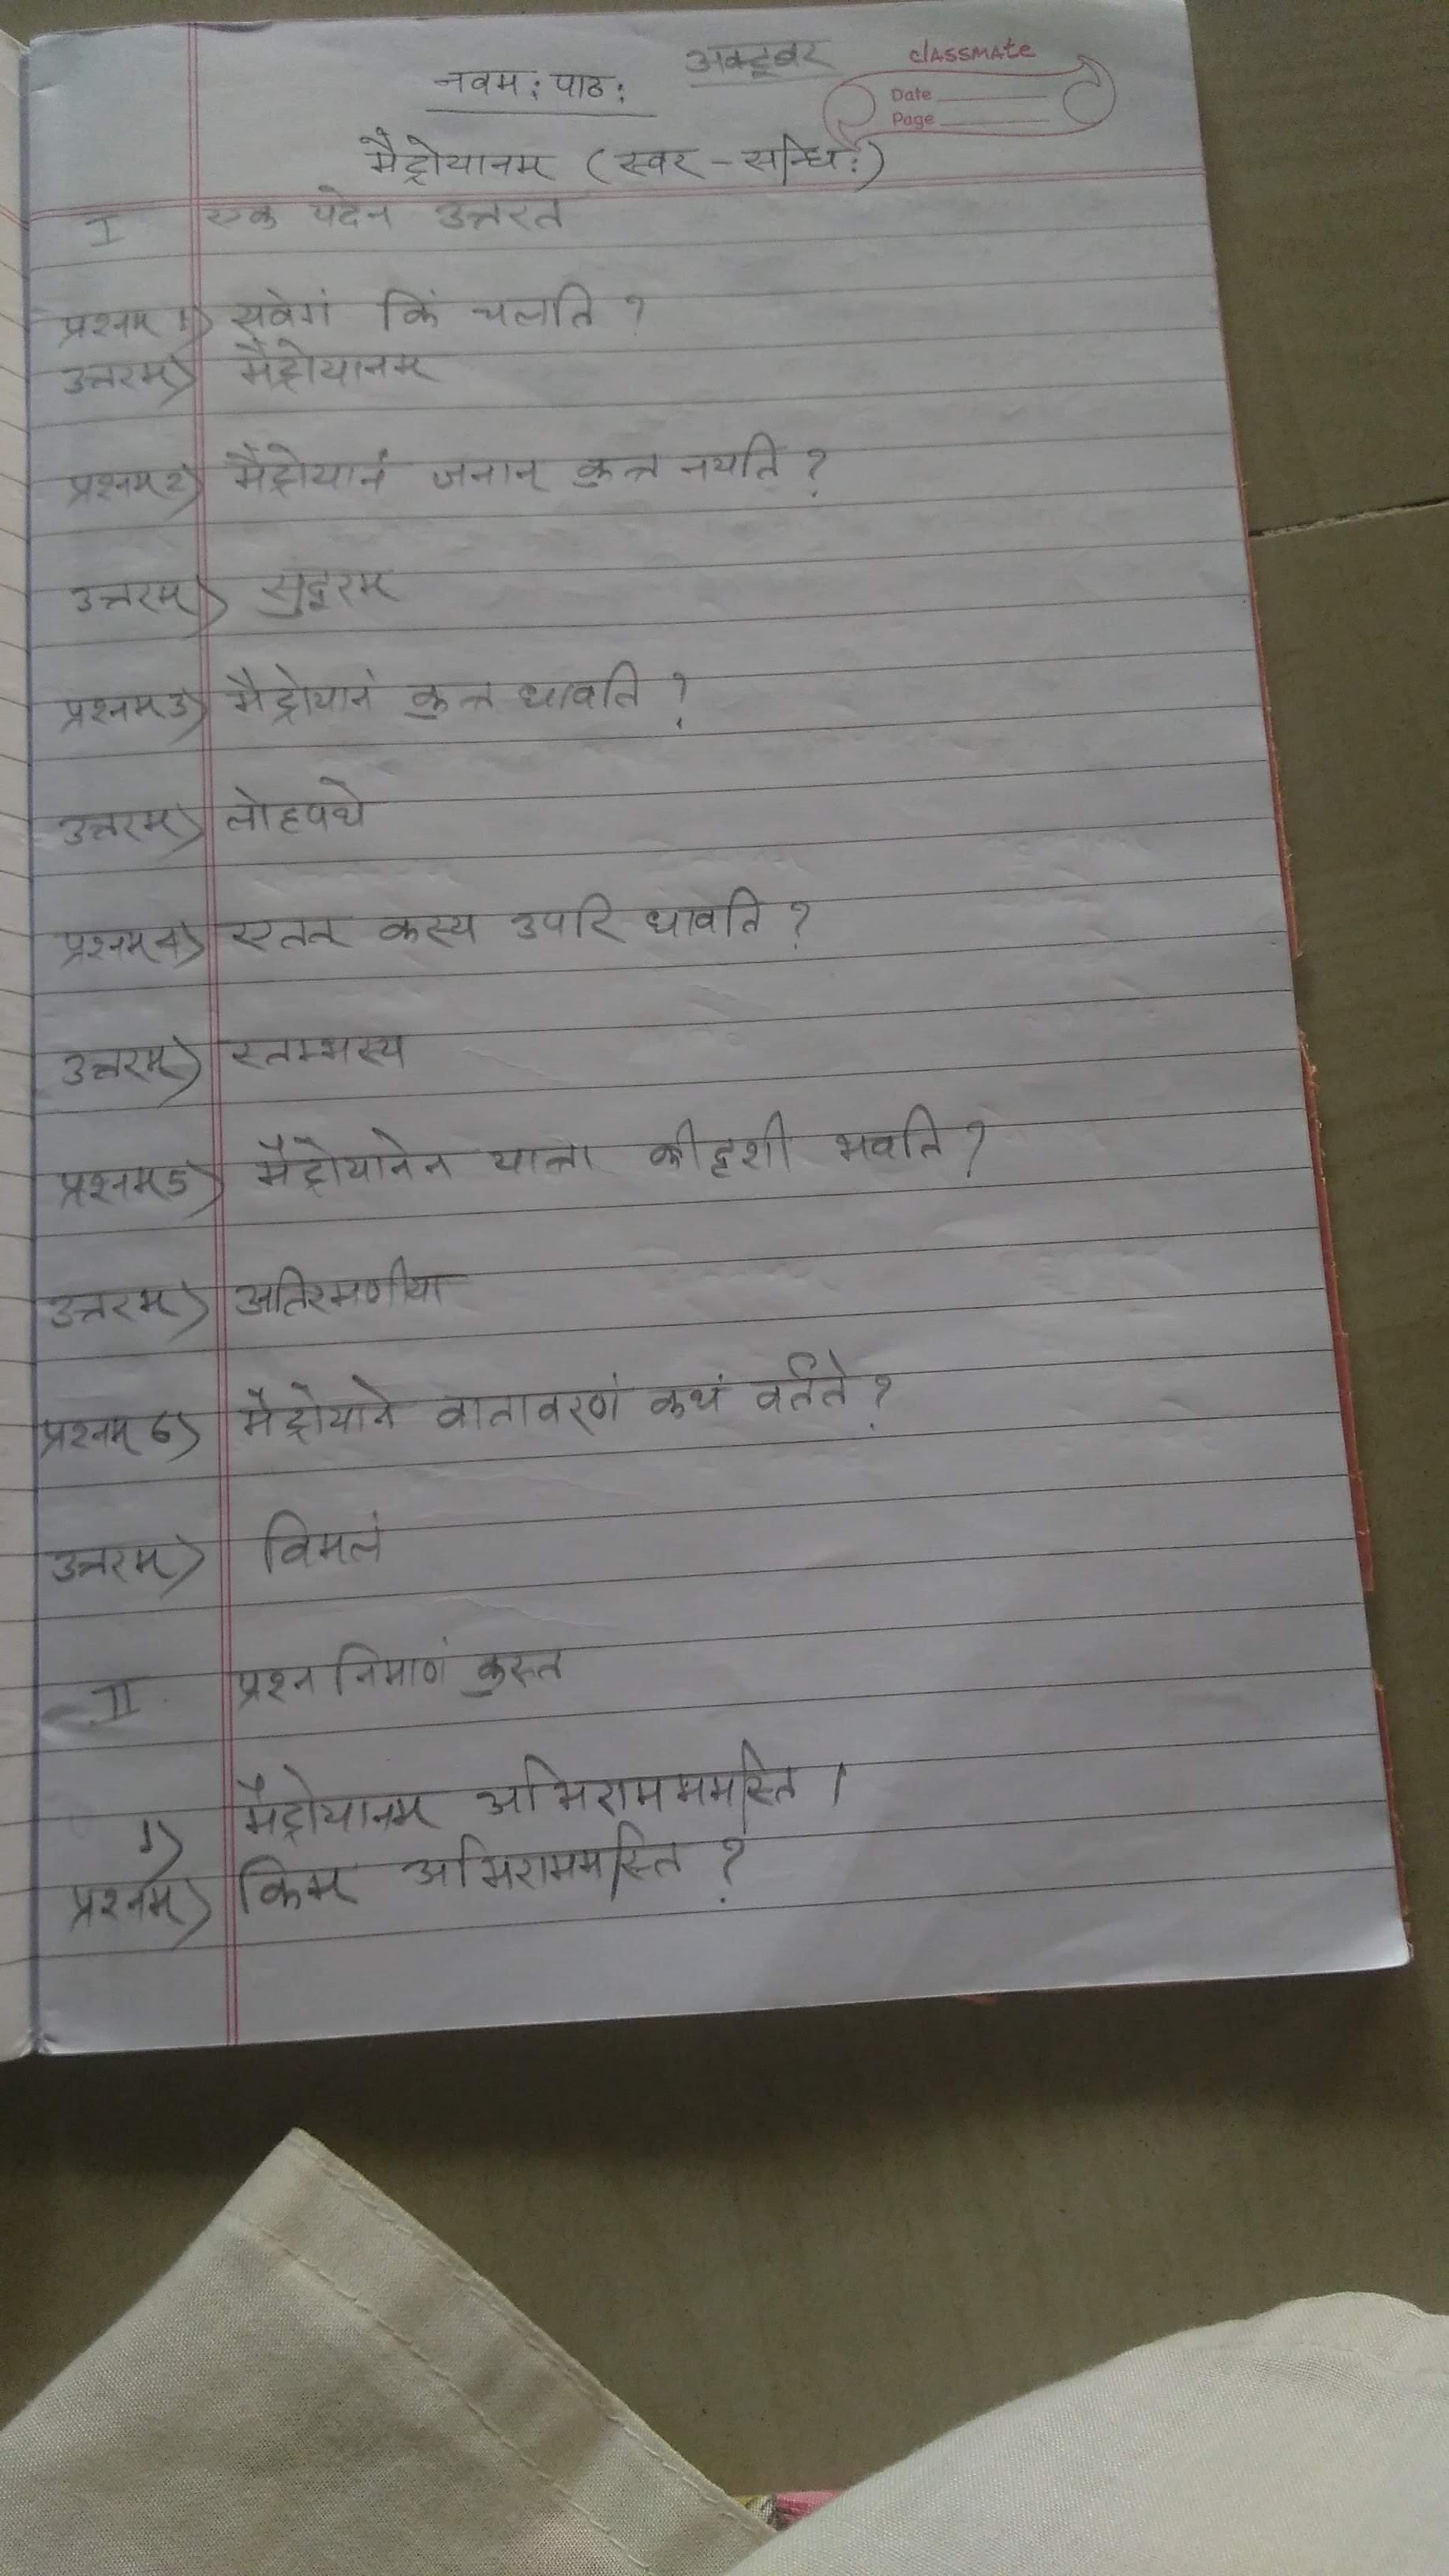 अक्टूबर
classmate
Date
Page
नवम: पाठ:
मैट्रोयानम् (स्वर - सन्धि:)
I एक पदेन उत्तरत
प्रश्नम् 1) सवेगं किं चलति ?
उत्तरम्) मैट्रोयानम्
प्रश्नम् 2) मैट्रोयानं जनान् कुत्र नयति ?
उत्तरम्) सुदूरम्
प्रश्नम् 3) मैट्रोयानं कुत्र धावति ?
उत्तरम्) लोहपथे
प्रश्नम् 4) एतत् कस्य उपरि धावति ?
उत्तरम्) स्तम्भस्य
प्रश्नम् 5) मैट्रोयानेन यात्रा कीदृशी भवति ?
उत्तरम्) अतिरमणीया
प्रश्नम् 6) मैट्रोयाने वातावरणं कथं वर्तते ?
उत्तरम्) विमलं
II प्रश्न निमाणं कुरुत
1) मैट्रोयानम् अभिरामममस्ति ।
प्रश्नम्) किम् अभिराममस्ति ?